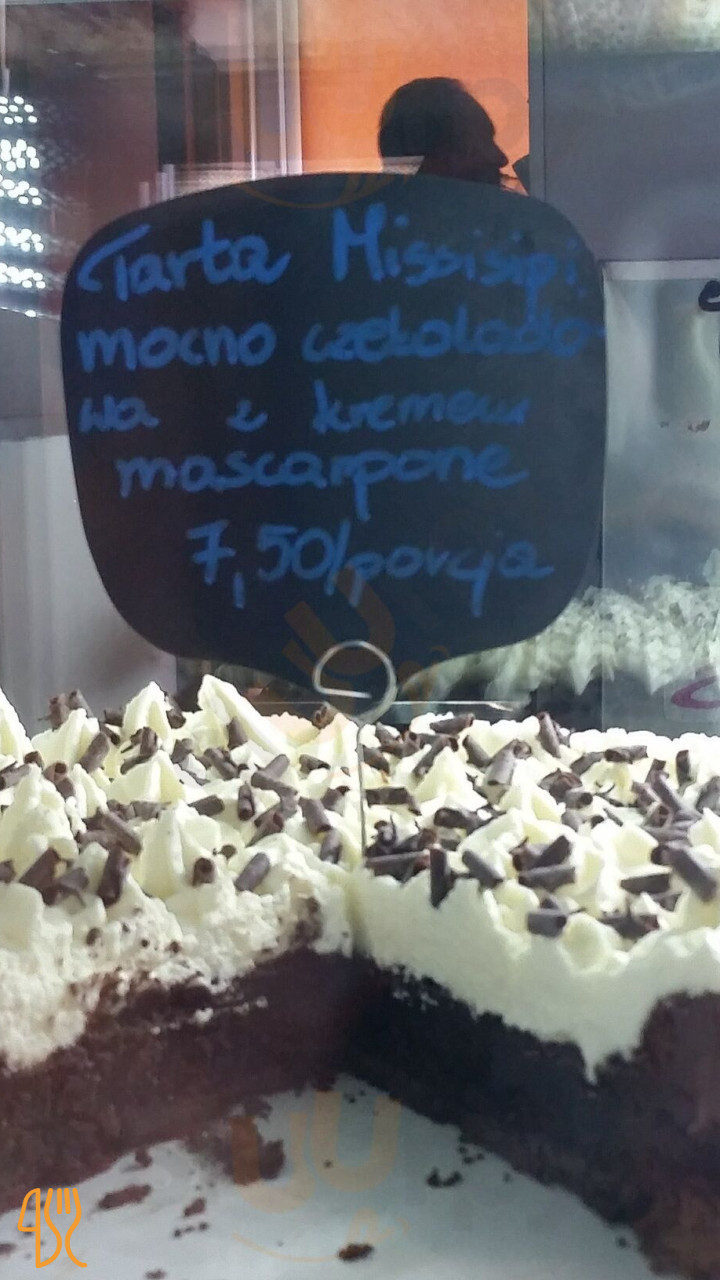 Tarta Missisipi
mocno czekolado-
wa z kremem
mascarpone
7,50/porcja